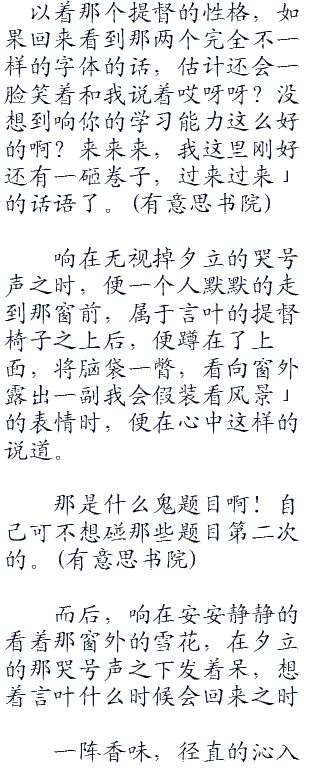 以着那个提督的性格，如
果回来看到那两个完全不一
样的字体的话，估计还会一
脸笑着和我说着哎呀呀？没
想到响你的学习能力这么好
的啊？来来来，我这里刚好
还有一砸卷子，过来过来」
的话语了。(有意思书院)
响在无视掉夕立的哭号
声之时，便一个人默默的走
到那窗前，属于言叶的提督
椅子之上后，便蹲在了上
面，将脑袋一瞥，看向窗外
露出一副我会假装看风景」
的表情时，便在心中这样的
说道。
那是什么鬼题目啊！自
己可不想碰那些题目第二次
的。(有意思书院)
而后，响在安安静静的
看着那窗外的雪花，在夕立
的那哭号声之下发着呆，想
着言叶什么时候会回来之时
一阵香味，径直的沁入